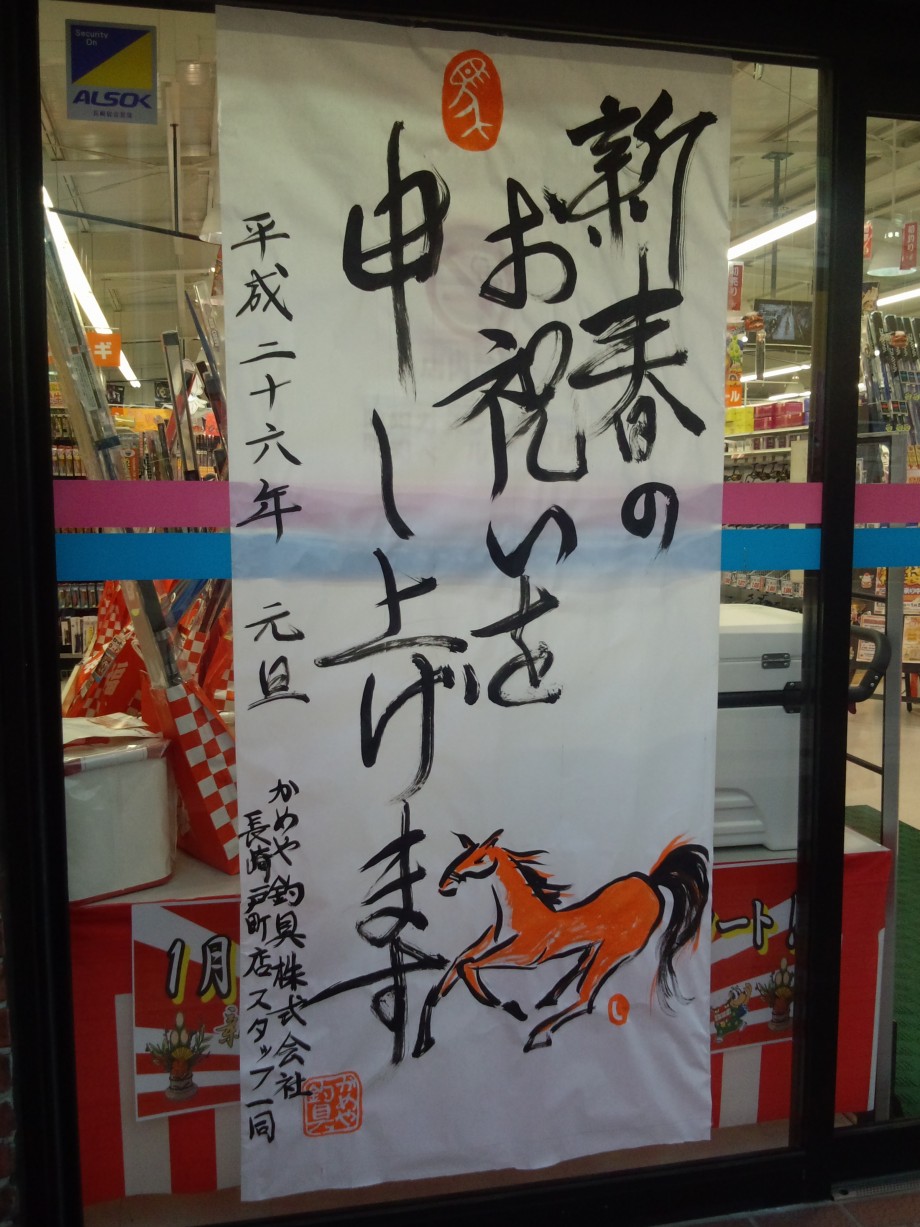 新春の
お祝いを
申し上げます
平成二十六年 元旦
かめや釣具株式会社
長崎戸町店スタッフ一同
かめや
釣具
Security
On
ALSOK
ギ
1月
ート!